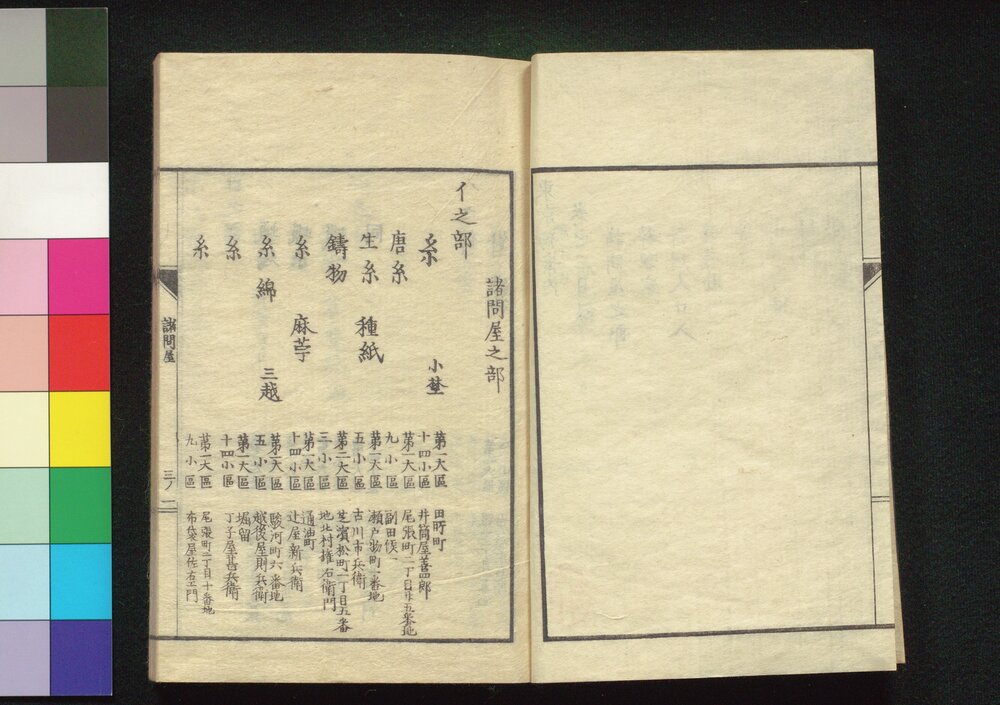 諸問屋之部
イ之部
糸 小埜 第一大區 十四小區 田町 井筒屋善四郎
唐糸 第一大區 九小區 尾張町二丁目廿五番地 副田俟一
生糸 種紙 第一大區 五小區 瀬戸物町一番地 古川市兵衛
鑄物 第二大區 三小區 芝濱松町一丁目五番地 北村権右衛門
糸 麻苧 第一大區 十四小區 通油町 辻屋新兵衛
糸 綿 三越 第一大區 五小區 駿河町六番地 越後屋則兵衛
糸 第一大區 十四小區 堀留 丁子屋甚兵衛
糸 第一大區 九小區 尾張町二丁目十番地 布袋屋佐右エ門
諸問屋
三ノ一